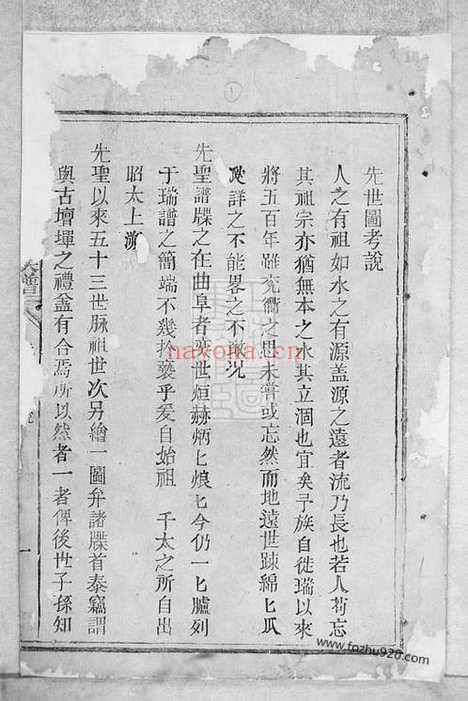 先世圖考說
人之有祖如水之有源蓋源之遠者流乃長也若人苟忘
其祖宗亦猶無本之水其立涸也宜矣予族自徙瑞以來
將五百年雖兖衢之思未嘗或忘然而地遠世疎綿匕瓜
瓞詳之不能畧之不 況
先聖譜牒之在曲阜者奕世烜赫炳匕烺匕今仍一匕臚列
于瑞譜之簡端不幾 乎爰自始祖 千太之所自出
昭太上溯
先聖以來五十三世脉祖世次另繪一圖弁諸牒首泰竊謂
與古壇墠之禮 有合焉所以然者一者俾後世子孫知
一
1
nayona.cn
www.fozhu920.com